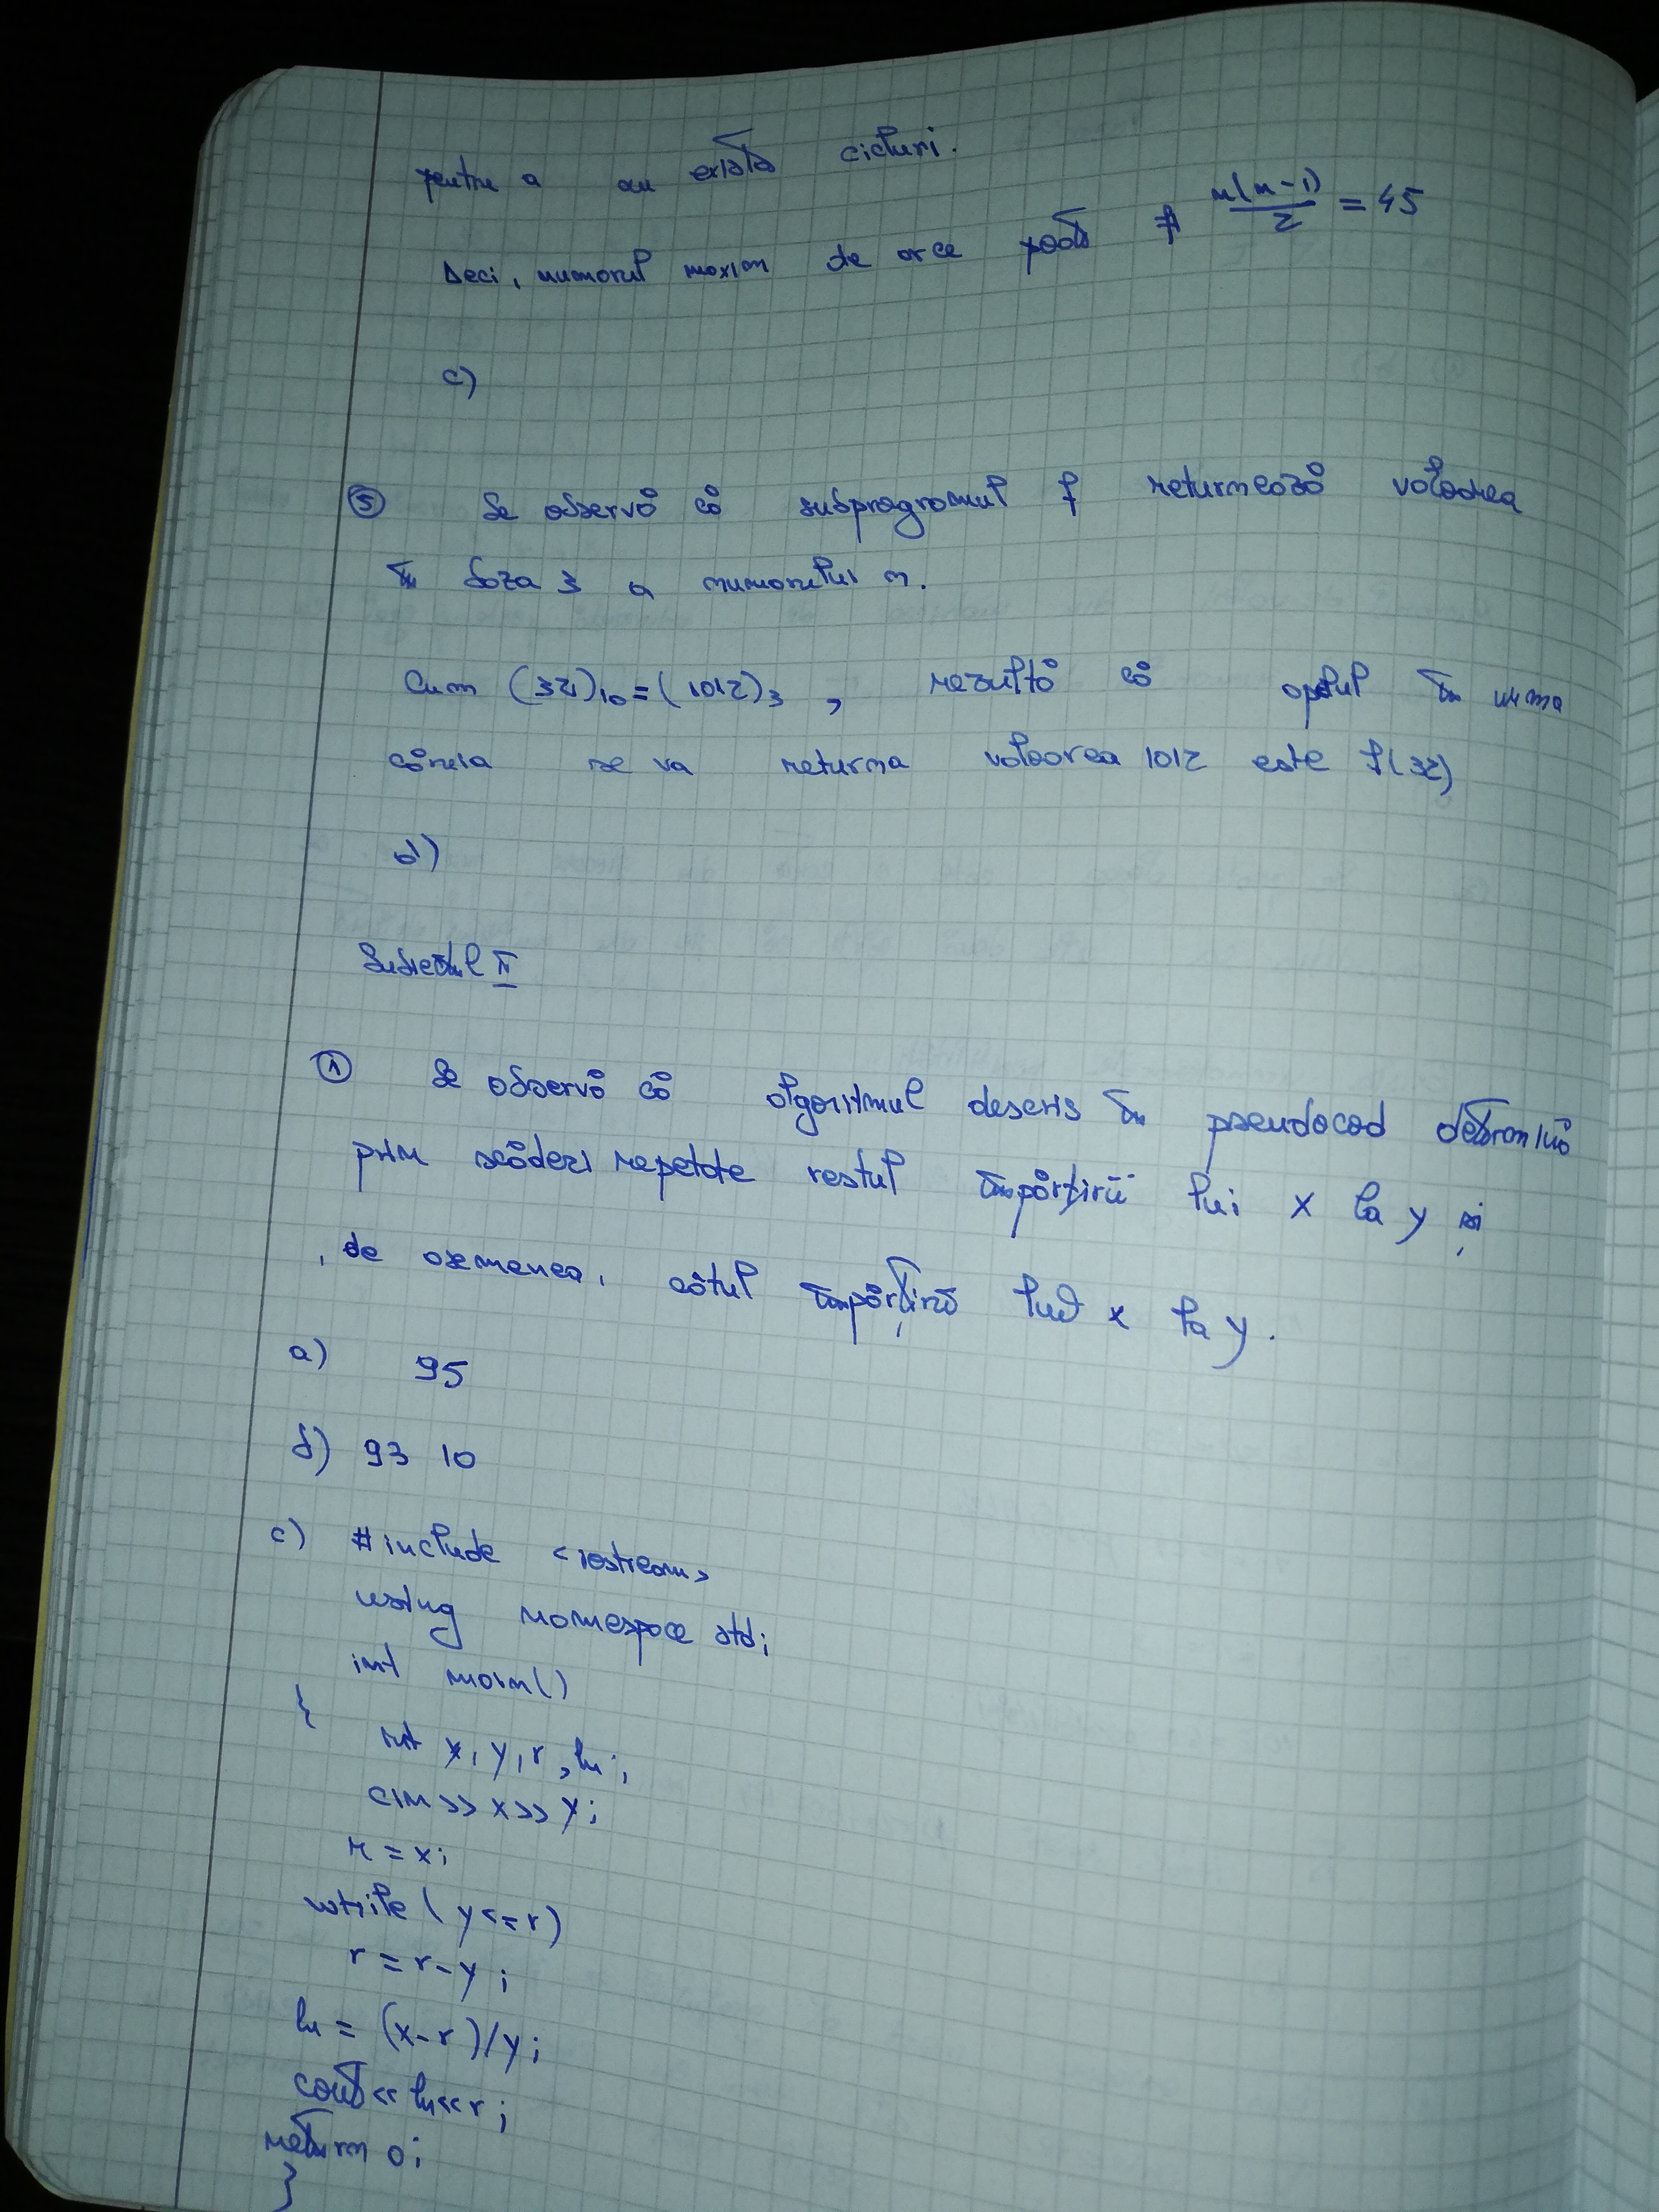 pentru a nu exista cicluri.
Deci, numarul maxim de arce poate fi n(n-1)/2 = 45
c)
⑤ Se observă că subprogramul f returnează valoarea
în baza 3 a numarului n.
Cum (32)₁₀=(1012)₃, rezultă că apelul în urma
căruia se va returna valoarea 1012 este f(32)
b)
Subiectul II
① Se observă că algoritmul descris în pseudocod determină
prin scăderi repetate restul împărțirii lui x la y și
, de asemenea, câtul împărțirii lui x la y.
a) 95
b) 93 10
c) #include <iostream>
using namespace std;
int main()
{
int x, y, r, lu;
cin>>x>>y;
r=x;
while(y<=r)
r=r-y;
lu=(x-r)/y;
cout<<lu<<r;
return 0;
}